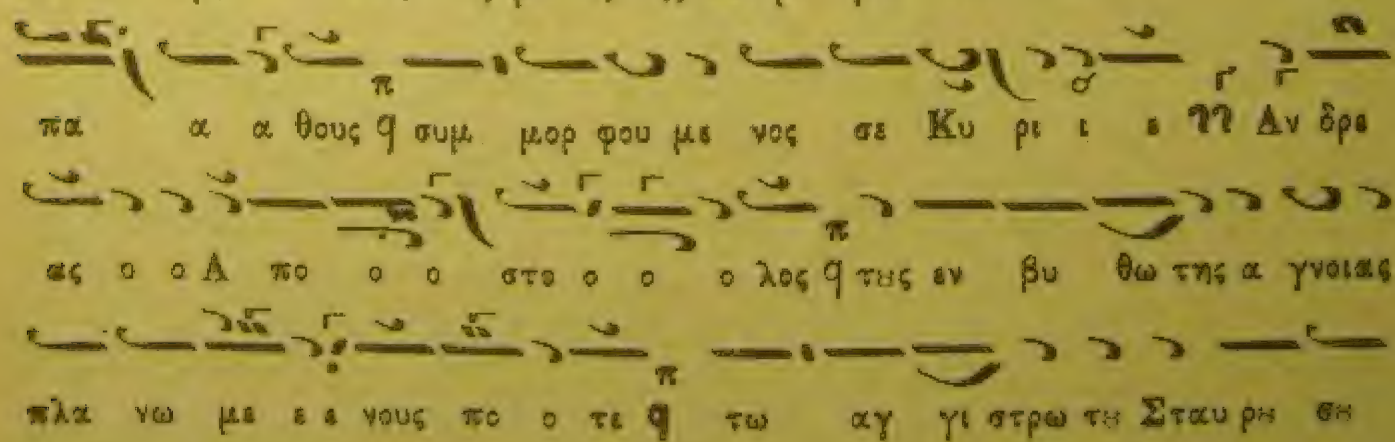 πα α α θους q συμ μορ φου με νος σε Κυ ρι ι ε Αν δρε
ας ο ο Α πο ο ο στο ο ο ο λος q τȣς εν βυ θω της α γνοιας
πλα νω με ε ε νους πο ο τε q τω αγ γι στρω τȣ Σταυ ρȣ σȣ